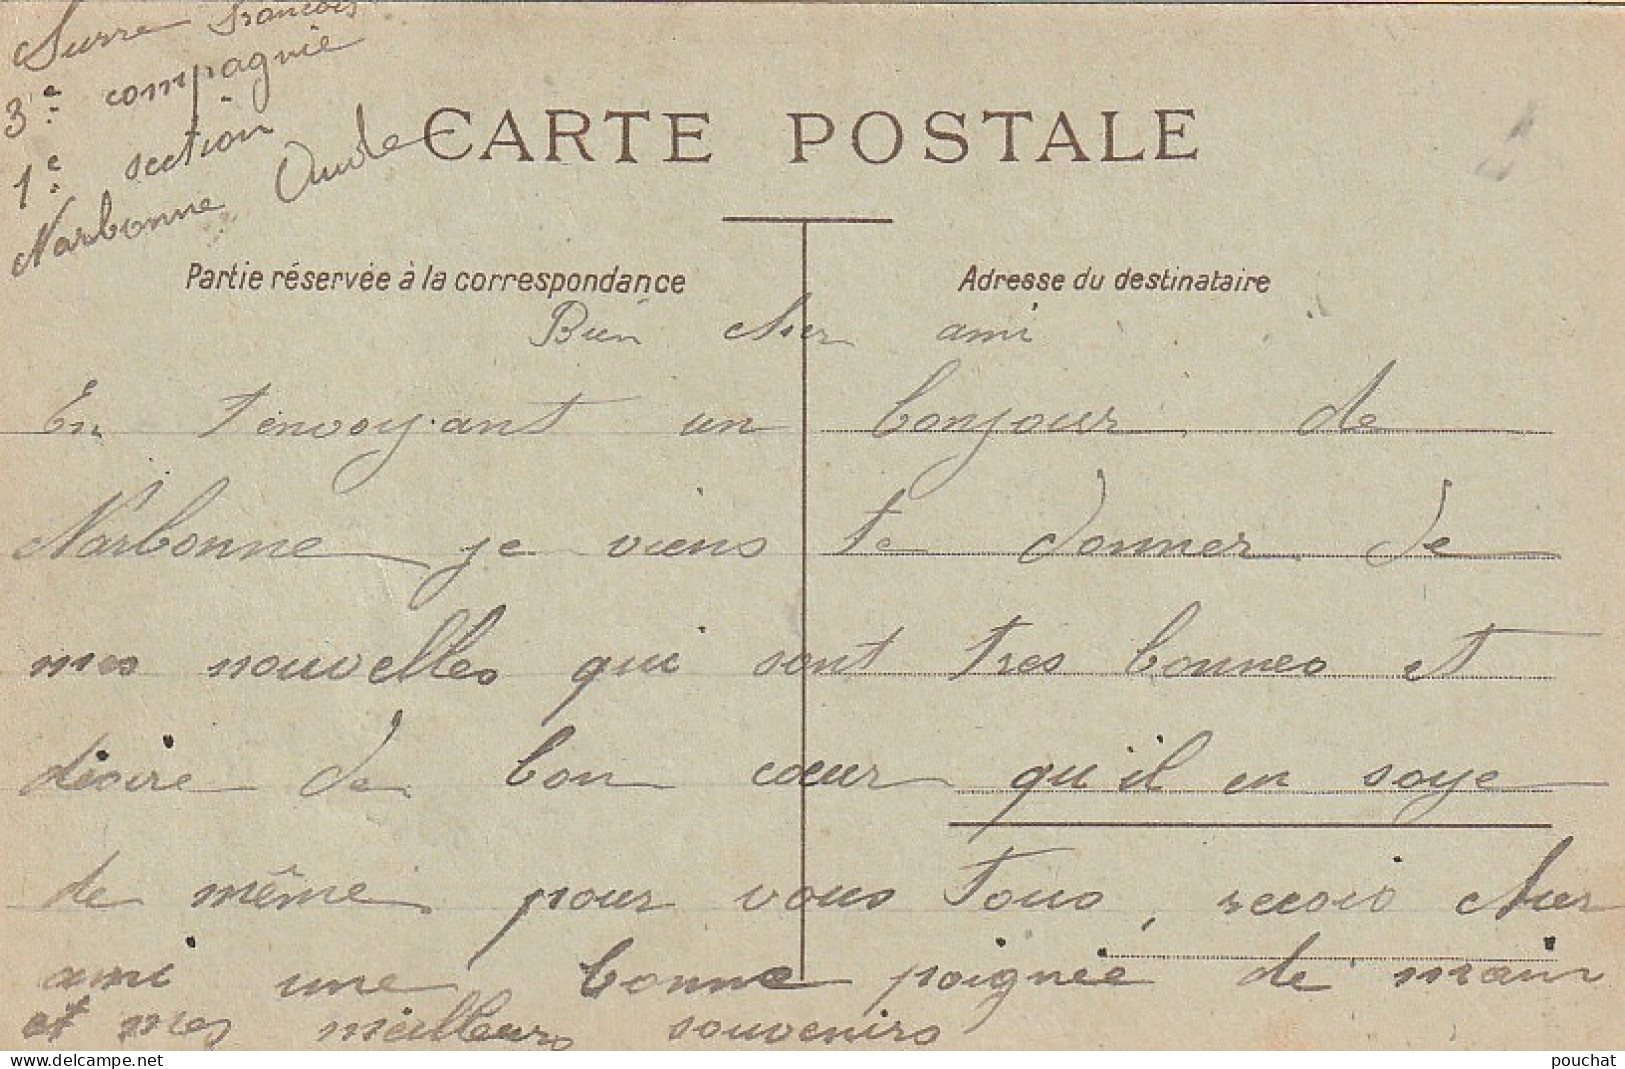 Surre François
3e compagnie
1e section
Narbonne Aude
CARTE POSTALE
Partie réservée à la correspondance
Adresse du destinataire
Bien cher ami
En t'envoyant un bonjour de
Narbonne je viens te donner de
mes nouvelles qui sont tres bonnes et
désire de bon cœur qu'il en soye
de même pour vous tous, recois cher
ami une bonne poignée de main
et mes meilleurs souvenirs
www.delcampe.net
pouchat